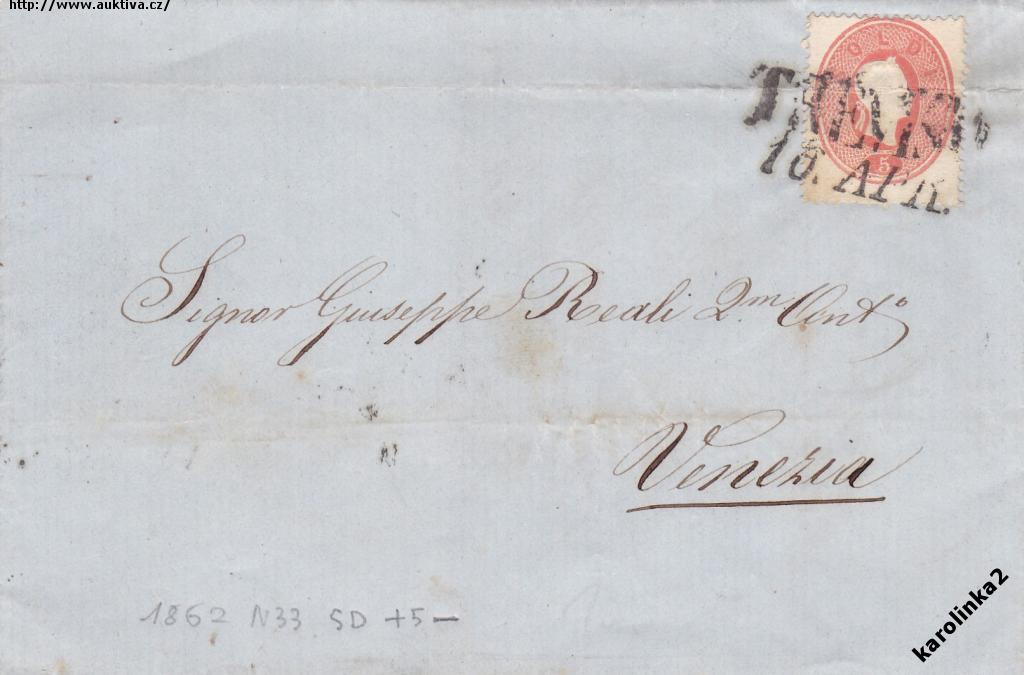 http://www.auktiva.cz/
SOLDI
5
16. APR.
Signor Giuseppe Reali Qm Ant.o
Venezia
1862 N33 SD +5 —
karolinka2